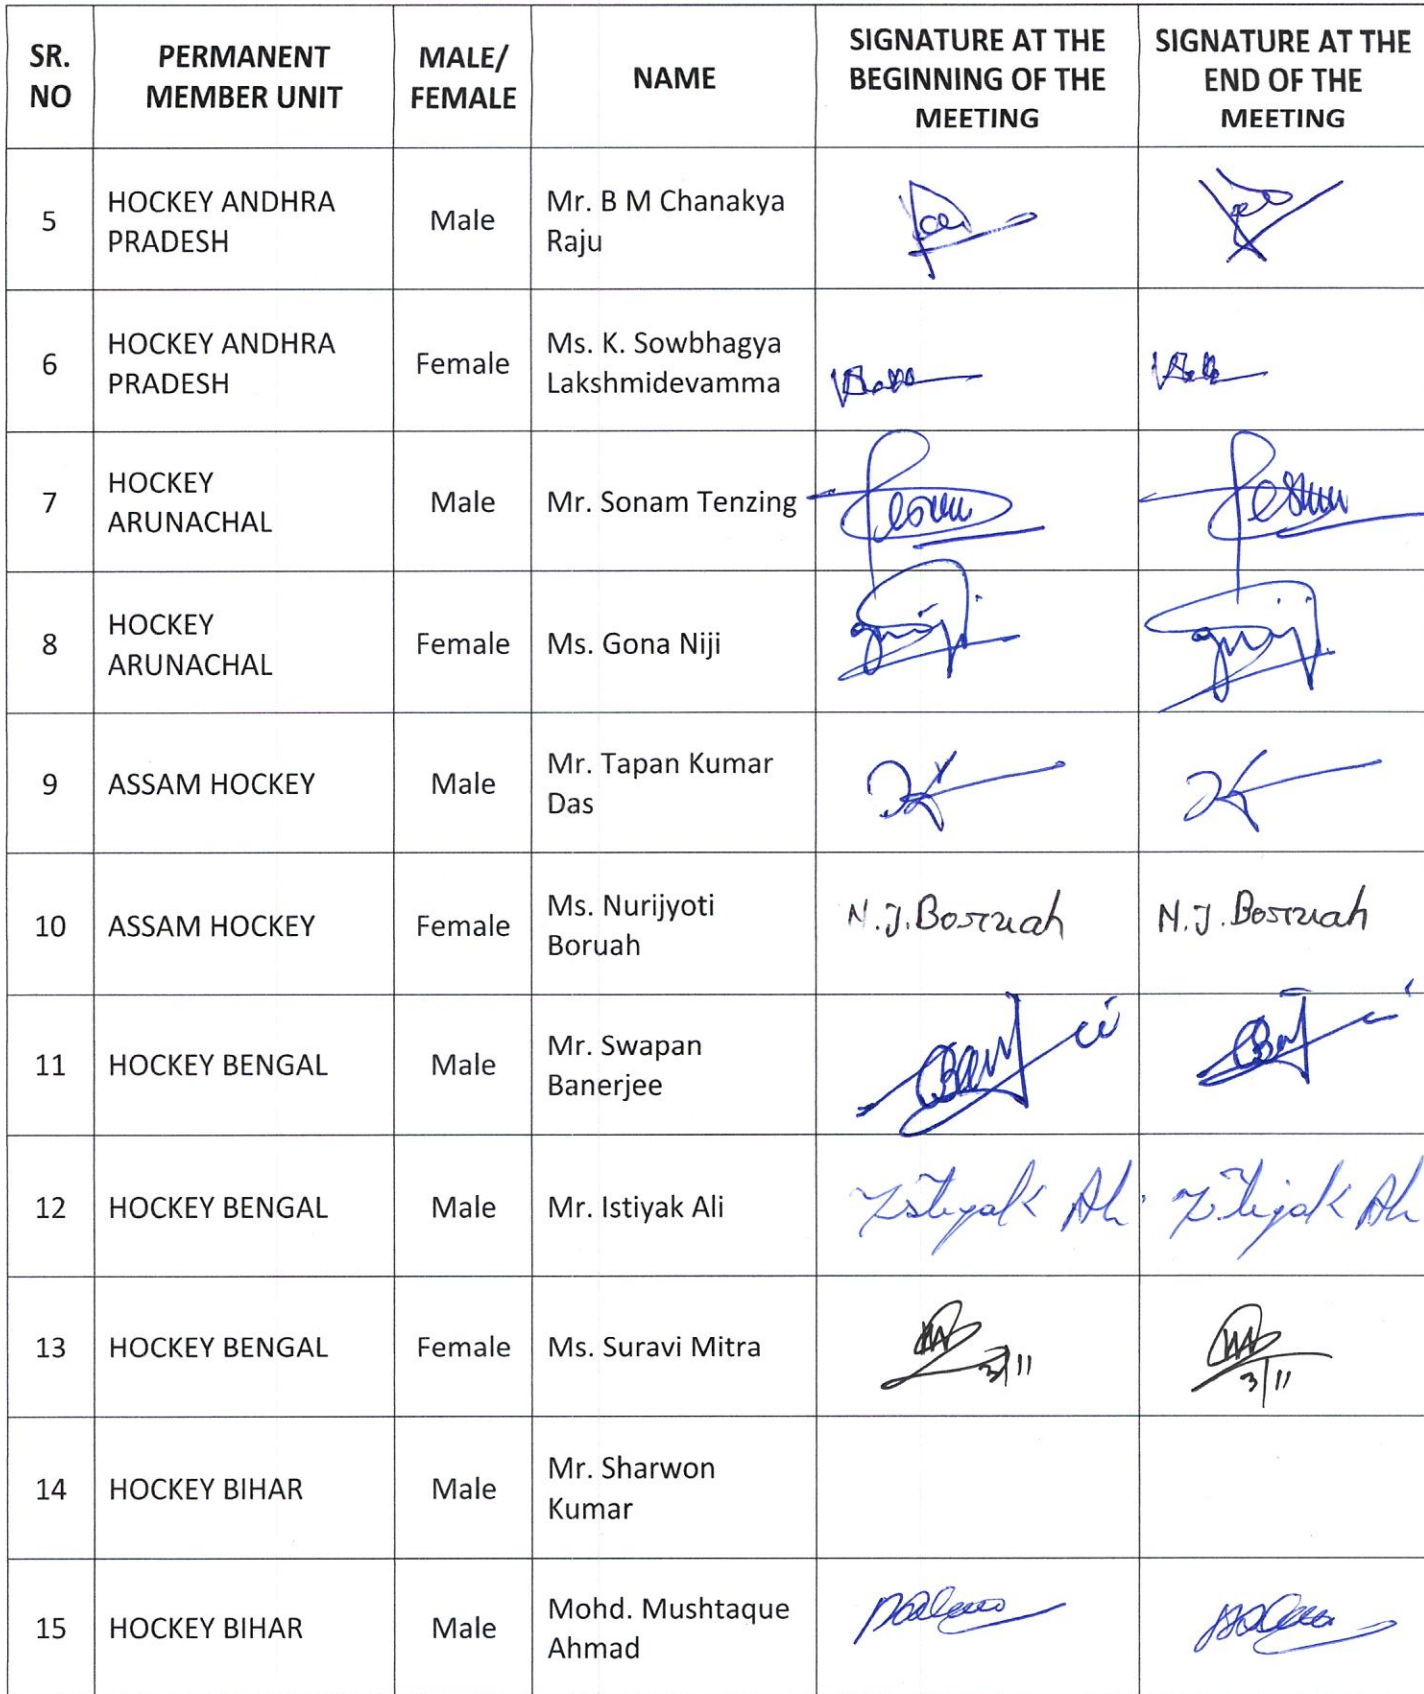 SR. NO
PERMANENT MEMBER UNIT
MALE/ FEMALE
NAME
SIGNATURE AT THE BEGINNING OF THE MEETING
SIGNATURE AT THE END OF THE MEETING
5
HOCKEY ANDHRA
PRADESH
Male
Mr. B M Chanakya
Raju
6
HOCKEY ANDHRA
PRADESH
Female
Ms. K. Sowbhagya
Lakshmidevamma
7
HOCKEY
ARUNACHAL
Male
Mr. Sonam Tenzing
8
HOCKEY
ARUNACHAL
Female
Ms. Gona Niji
9
ASSAM HOCKEY
Male
Mr. Tapan Kumar
Das
10
ASSAM HOCKEY
Female
Ms. Nurijyoti
Boruah
N.J. Boruah
N.J. Boruah
11
HOCKEY BENGAL
Male
Mr. Swapan
Banerjee
12
HOCKEY BENGAL
Male
Mr. Istiyak Ali
Istiyak Ali
Istiyak Ali
13
HOCKEY BENGAL
Female
Ms. Suravi Mitra
3/11
3/11
14
HOCKEY BIHAR
Male
Mr. Sharwon
Kumar
15
HOCKEY BIHAR
Male
Mohd. Mushtaque
Ahmad